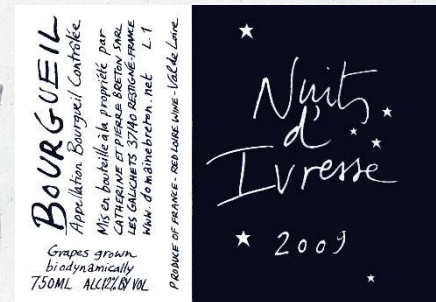 BOURGUEIL
Appellation Bourgueil Contrôlée
Mis en bouteille à la propriété par
CATHERINE ET PIERRE BRETON SARL
LES GALICHETS 37140 RESTIGNÉ-FRANCE
www.domainebreton.net L.1
PRODUCE OF FRANCE - RED LOIRE WINE - Val de Loire
Grapes grown
biodynamically
750ML ALC12% BY VOL
Nuits
d'
Ivresse
2009